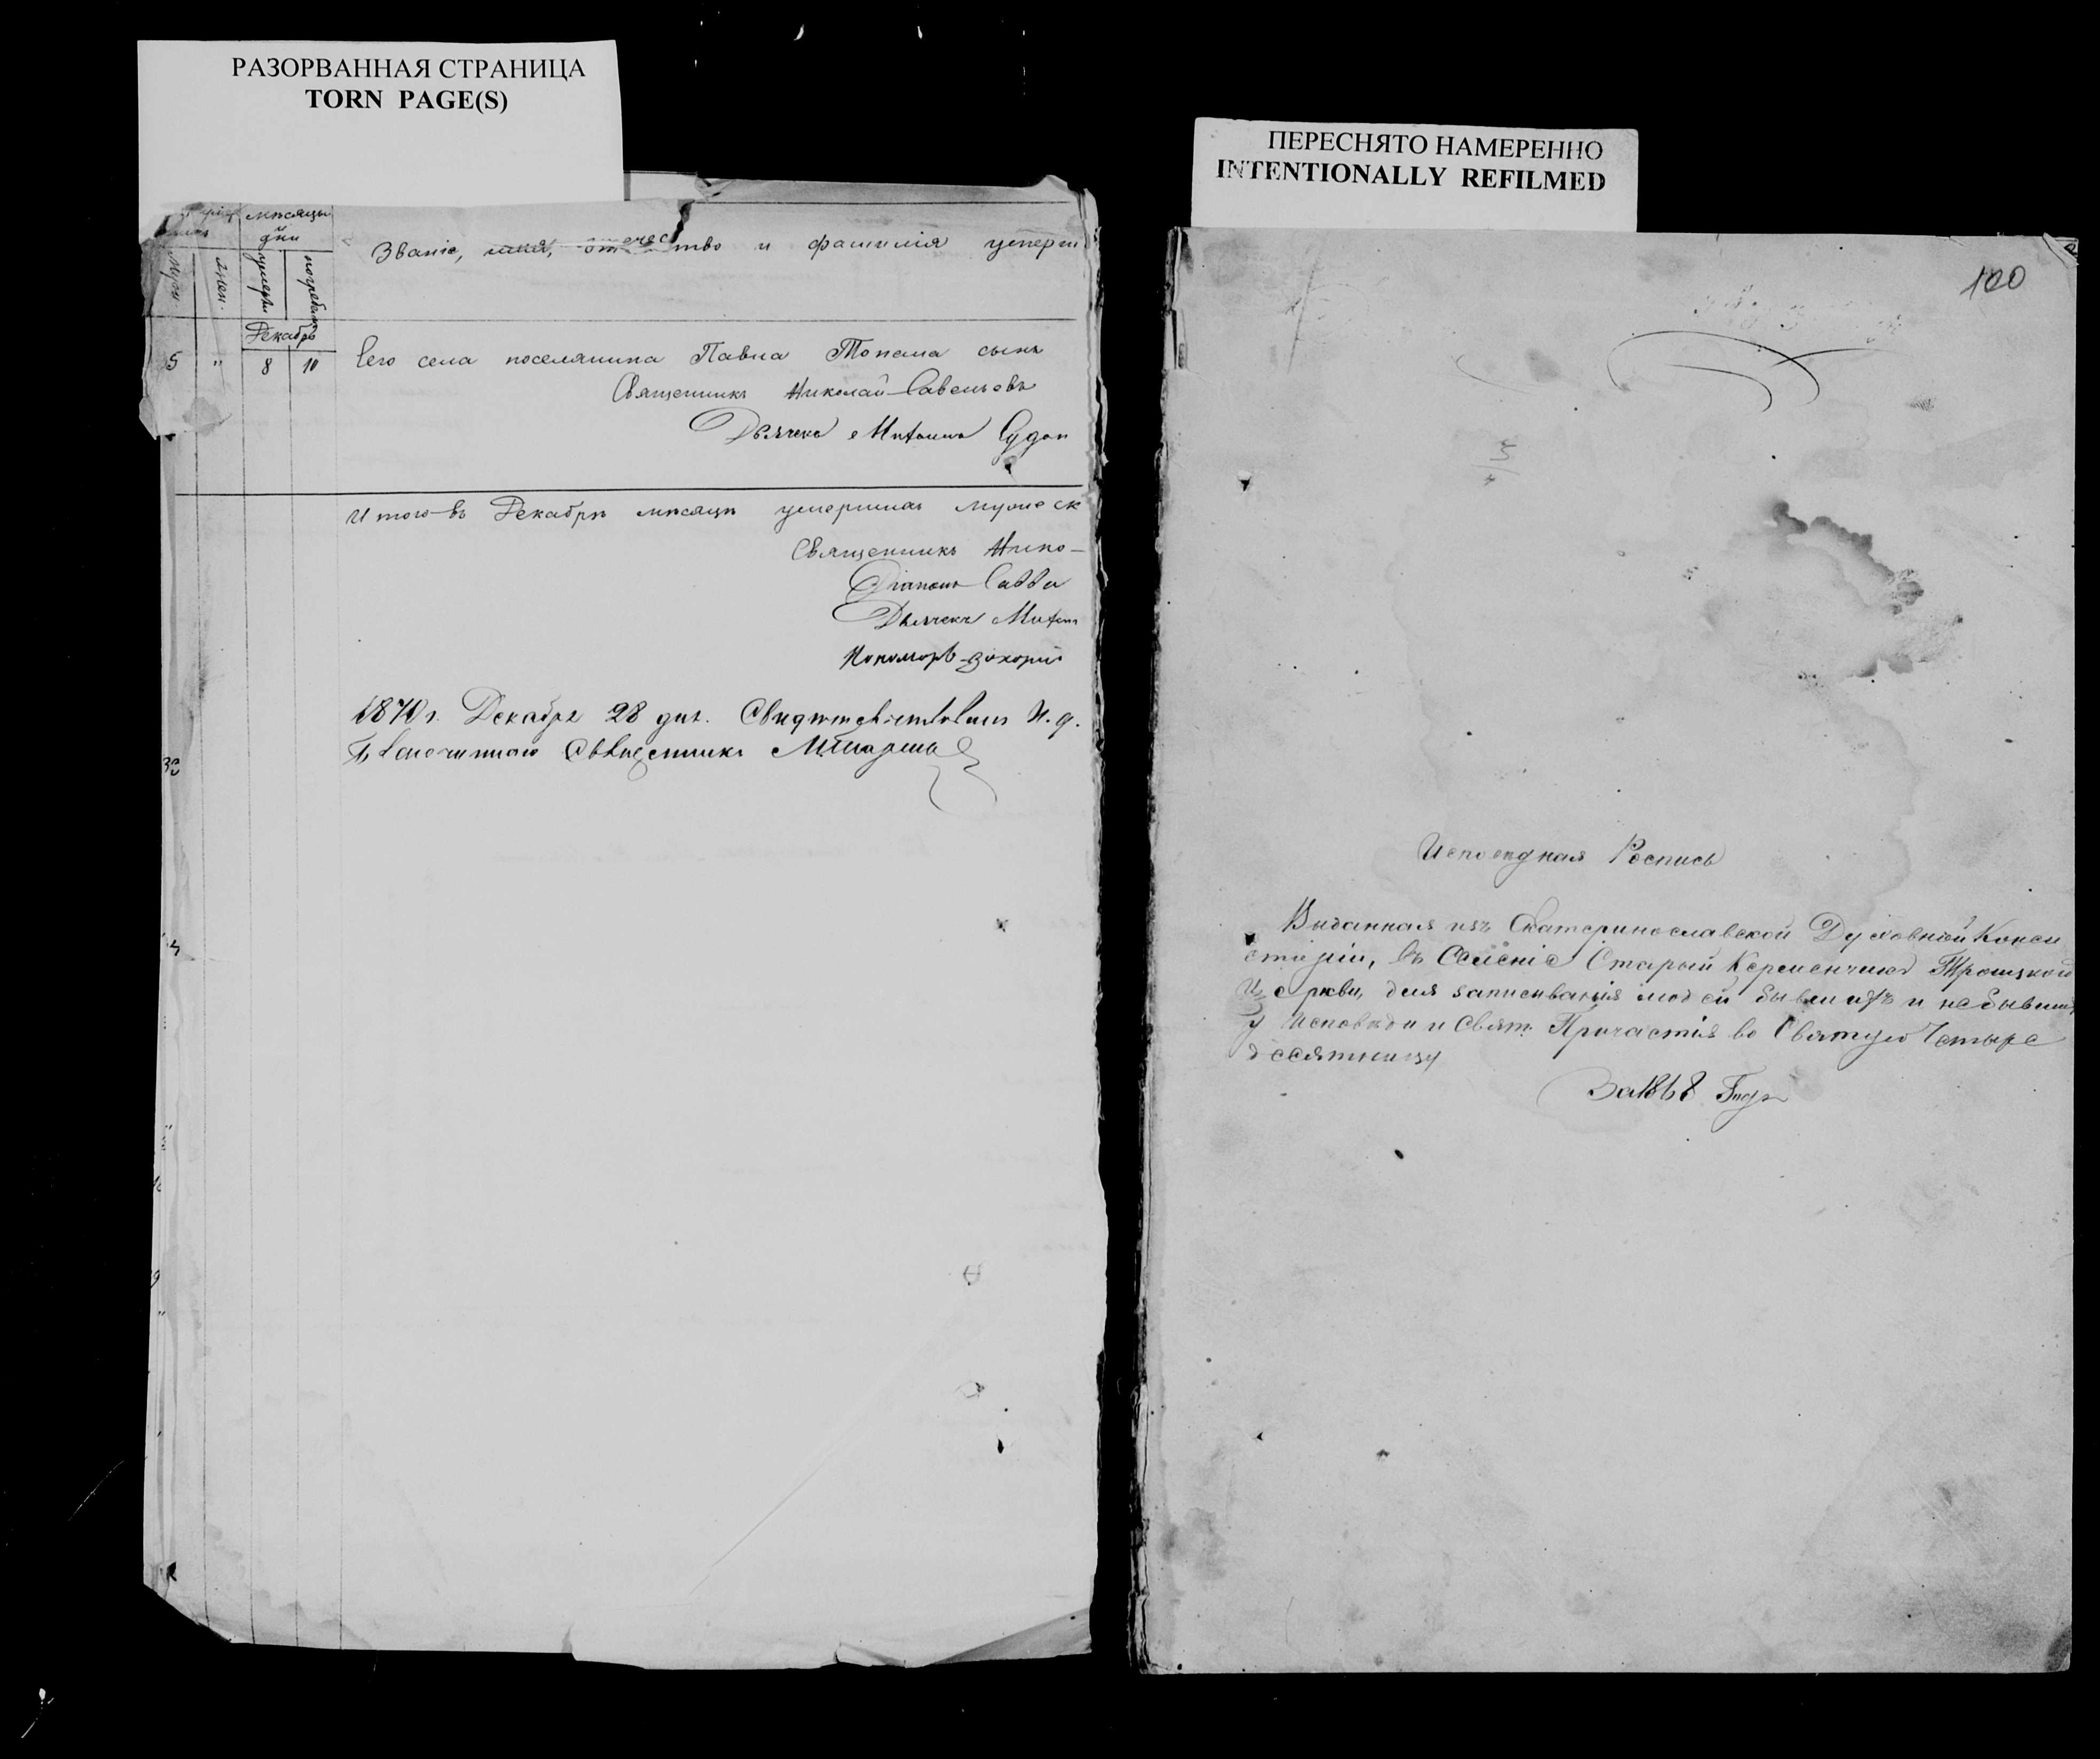 РАЗОРВАННАЯ СТРАНИЦА
TORN PAGE(S)
мѣсяцы и
дни
Званіе, имя, отечество и фамилія умерш
Муж.
Жен.
умерты
погребены
Декабрь
5 " 8 10
Сего села поселянина Павла Топала сынъ
Священникъ Николай Савельевъ
Дьячекъ Митрит
Итого въ Декабрѣ мѣсяцѣ умершихъ мужеск
Священникъ Нико-
Діаконъ Савва
Дьячекъ
Пономарь Захарій
1870 г. Декабря 28 дня. И. д.
Благочиннаго Священникъ
ПЕРЕСНЯТО НАМЕРЕННО
INTENTIONALLY REFILMED
100
Исповедная Роспись
Выданная изъ Екатеринославской Духовной Конси
сторіи, въ Селеніе Старый Керменчикъ Троицкой
Церкви, для записыванія людей бывшихъ и небывших
у Исповеди и Свят. Причастія во Святую Четыре
десятницу
За 1868 Годъ